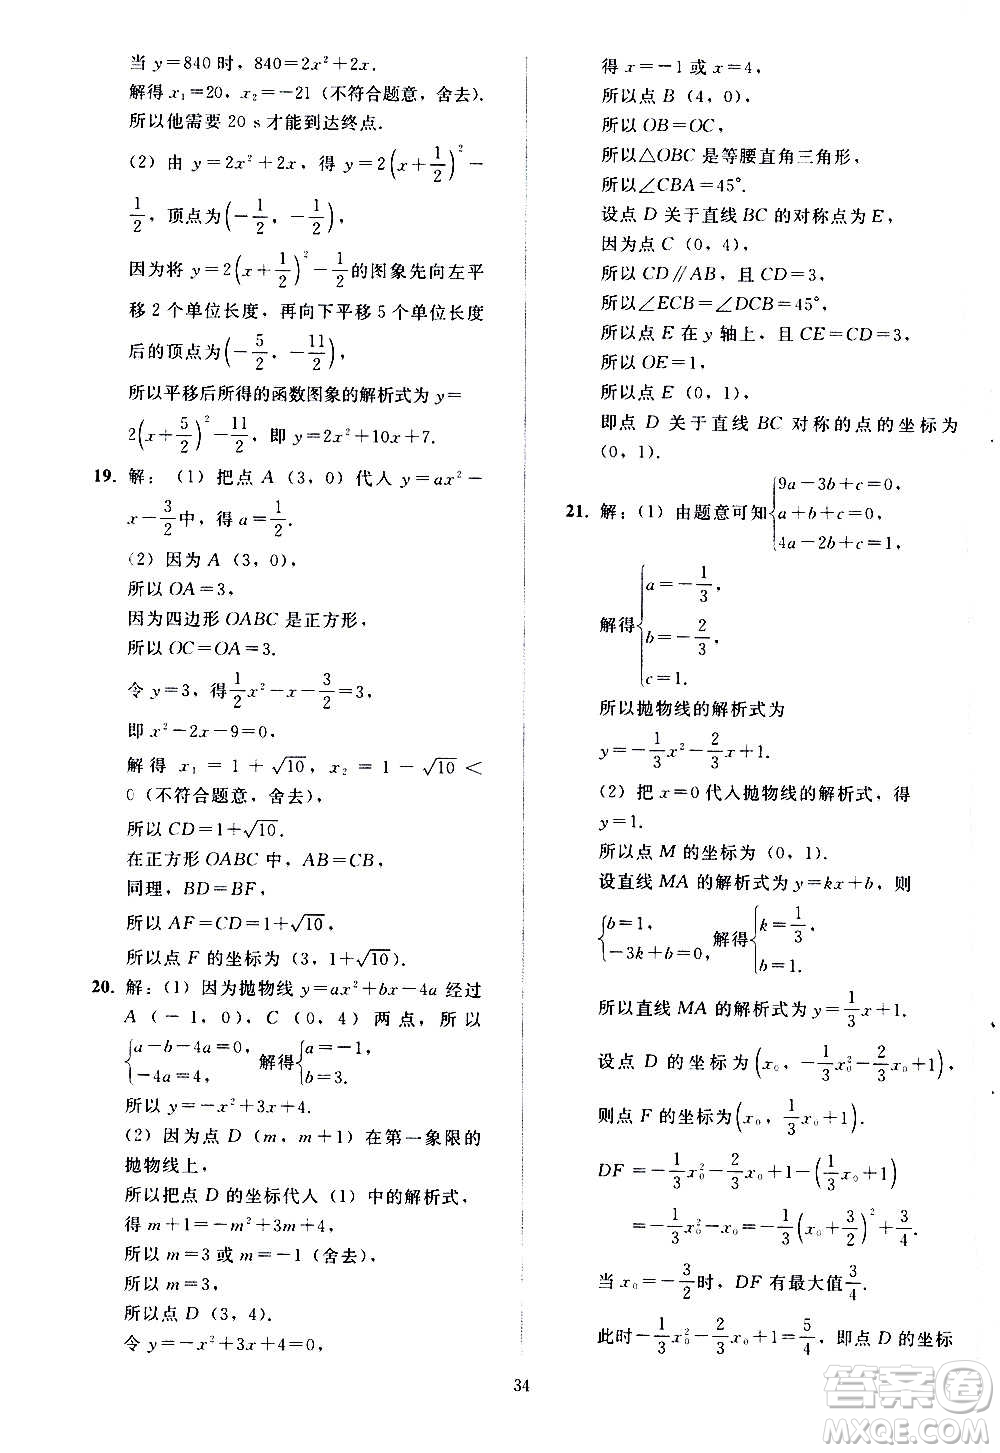 当 y=840 时，840=2x²+2x.
解得 x₁=20，x₂=-21（不符合题意，舍去）.
所以他需要 20 s 才能到达终点.
（2）由 y=2x²+2x，得 y=2(x+1/2)²-
1/2，顶点为(-1/2，-1/2)，
因为将 y=2(x+1/2)²-1/2的图象先向左平
移 2 个单位长度，再向下平移 5 个单位长度
后的顶点为(-5/2，-11/2)，
所以平移后所得的函数图象的解析式为 y=
2(x+5/2)²-11/2，即 y=2x²+10x+7.
19. 解：（1）把点 A（3，0）代人 y=ax²-
x-3/2中，得 a=1/2.
（2）因为 A（3，0），
所以 OA=3，
因为四边形 OABC 是正方形，
所以 OC=OA=3.
令 y=3，得1/2x²-x-3/2=3，
即 x²-2x-9=0，
解得 x₁=1+√10，x₂=1-√10<
0（不符合题意，舍去），
所以 CD=1+√10.
在正方形 OABC 中，AB=CB，
同理，BD=BF，
所以 AF=CD=1+√10，
所以点 F 的坐标为（3，1+√10）.
20. 解：（1）因为抛物线 y=ax²+bx-4a 经过
A（-1，0），C（0，4）两点，所以
{a-b-4a=0，-4a=4，解得{a=-1，b=3.
所以 y=-x²+3x+4.
（2）因为点 D（m，m+1）在第一象限的
抛物线上，
所以把点 D 的坐标代人（1）中的解析式，
得 m+1=-m²+3m+4，
所以 m=3 或 m=-1（舍去），
所以 m=3，
所以点 D（3，4）.
令 y=-x²+3x+4=0，
得 x=-1 或 x=4，
所以点 B（4，0），
所以 OB=OC，
所以△OBC 是等腰直角三角形，
所以∠CBA=45°.
设点 D 关于直线 BC 的对称点为 E，
因为点 C（0，4），
所以 CD∥AB，且 CD=3，
所以∠ECB=∠DCB=45°，
所以点 E 在 y 轴上，且 CE=CD=3，
所以 OE=1，
所以点 E（0，1），
即点 D 关于直线 BC 对称的点的坐标为
（0，1）.
21. 解：（1）由题意可知{9a-3b+c=0，a+b+c=0，4a-2b+c=1，
解得{a=-1/3，b=-2/3，c=1.
所以抛物线的解析式为
y=-1/3x²-2/3x+1.
（2）把 x=0 代人抛物线的解析式，得
y=1.
所以点 M 的坐标为（0，1）.
设直线 MA 的解析式为 y=kx+b，则
{b=1，-3k+b=0，解得{k=1/3，b=1.
所以直线 MA 的解析式为 y=1/3x+1.
设点 D 的坐标为(x₀，-1/3x₀²-2/3x₀+1)，
则点 F 的坐标为(x₀，1/3x₀+1).
DF=-1/3x₀²-2/3x₀+1-(1/3x₀+1)
=-1/3x₀²-x₀=-1/3(x₀+3/2)²+3/4.
当 x₀=-3/2时，DF 有最大值3/4.
此时-1/3x₀²-2/3x₀+1=5/4，即点 D 的坐标
34
答案圈
MXQE.COM